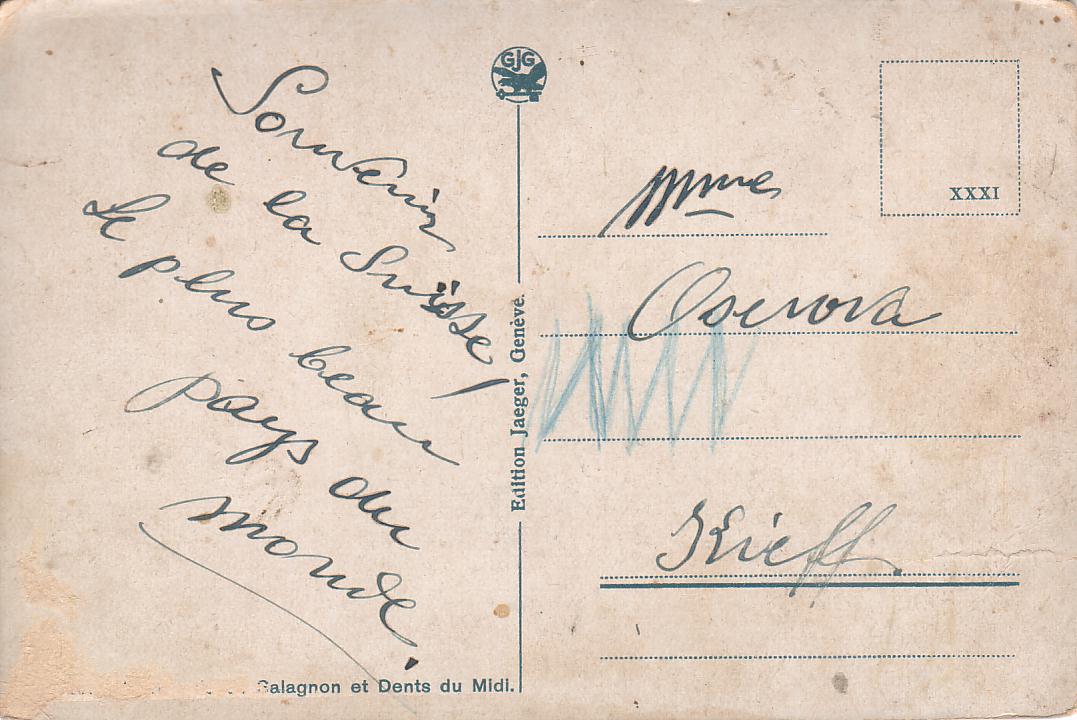 Souvenir
de la Suisse!
Le plus beau
pays du
monde.
GJG
Edition Jaeger, Genève.
XXXI
Mme
Oserova
Kieff.
Salagnon et Dents du Midi.